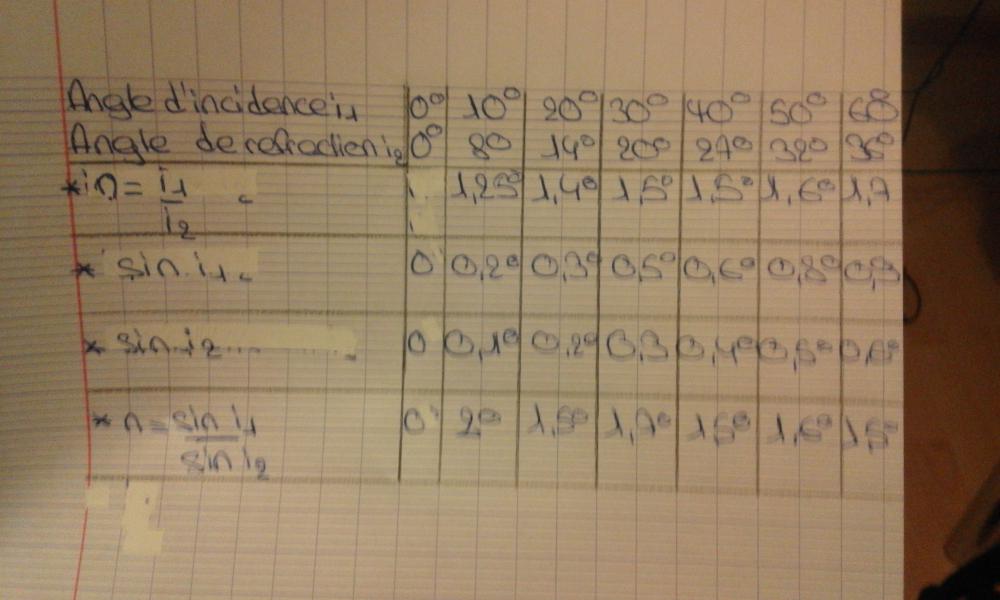 Angle d'incidence i1 0° 10° 20° 30° 40° 50° 60°
Angle de refraction i2 0° 8° 14° 20° 27° 32° 36°
* n = i1 1,25° 1,4° 1,5° 1,5° 1,6° 1,7
i2
* sin i1 0 0,2° 0,3° 0,5° 0,6° 0,8° 0,9
* sin i2 0 0,1° 0,2° 0,3 0,4° 0,5° 0,6°
* n = sin i1 0 2° 1,5° 1,7° 1,5° 1,6° 1,5°
sin i2